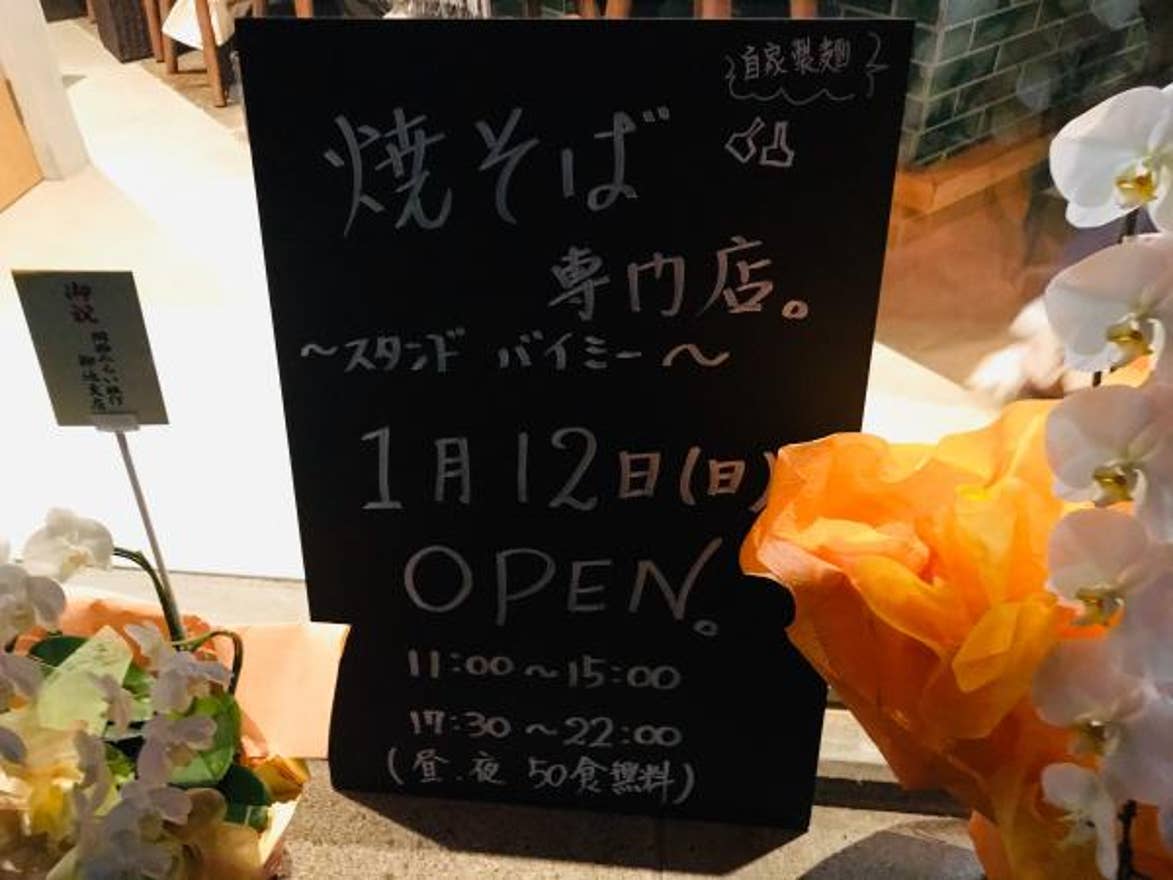 自家製麺
焼そば
専門店。
〜スタンド バイミー〜
1月12日(日)
OPEN。
11:00〜15:00
17:30〜22:00
(昼.夜 50食無料)
御祝
関西みらい銀行